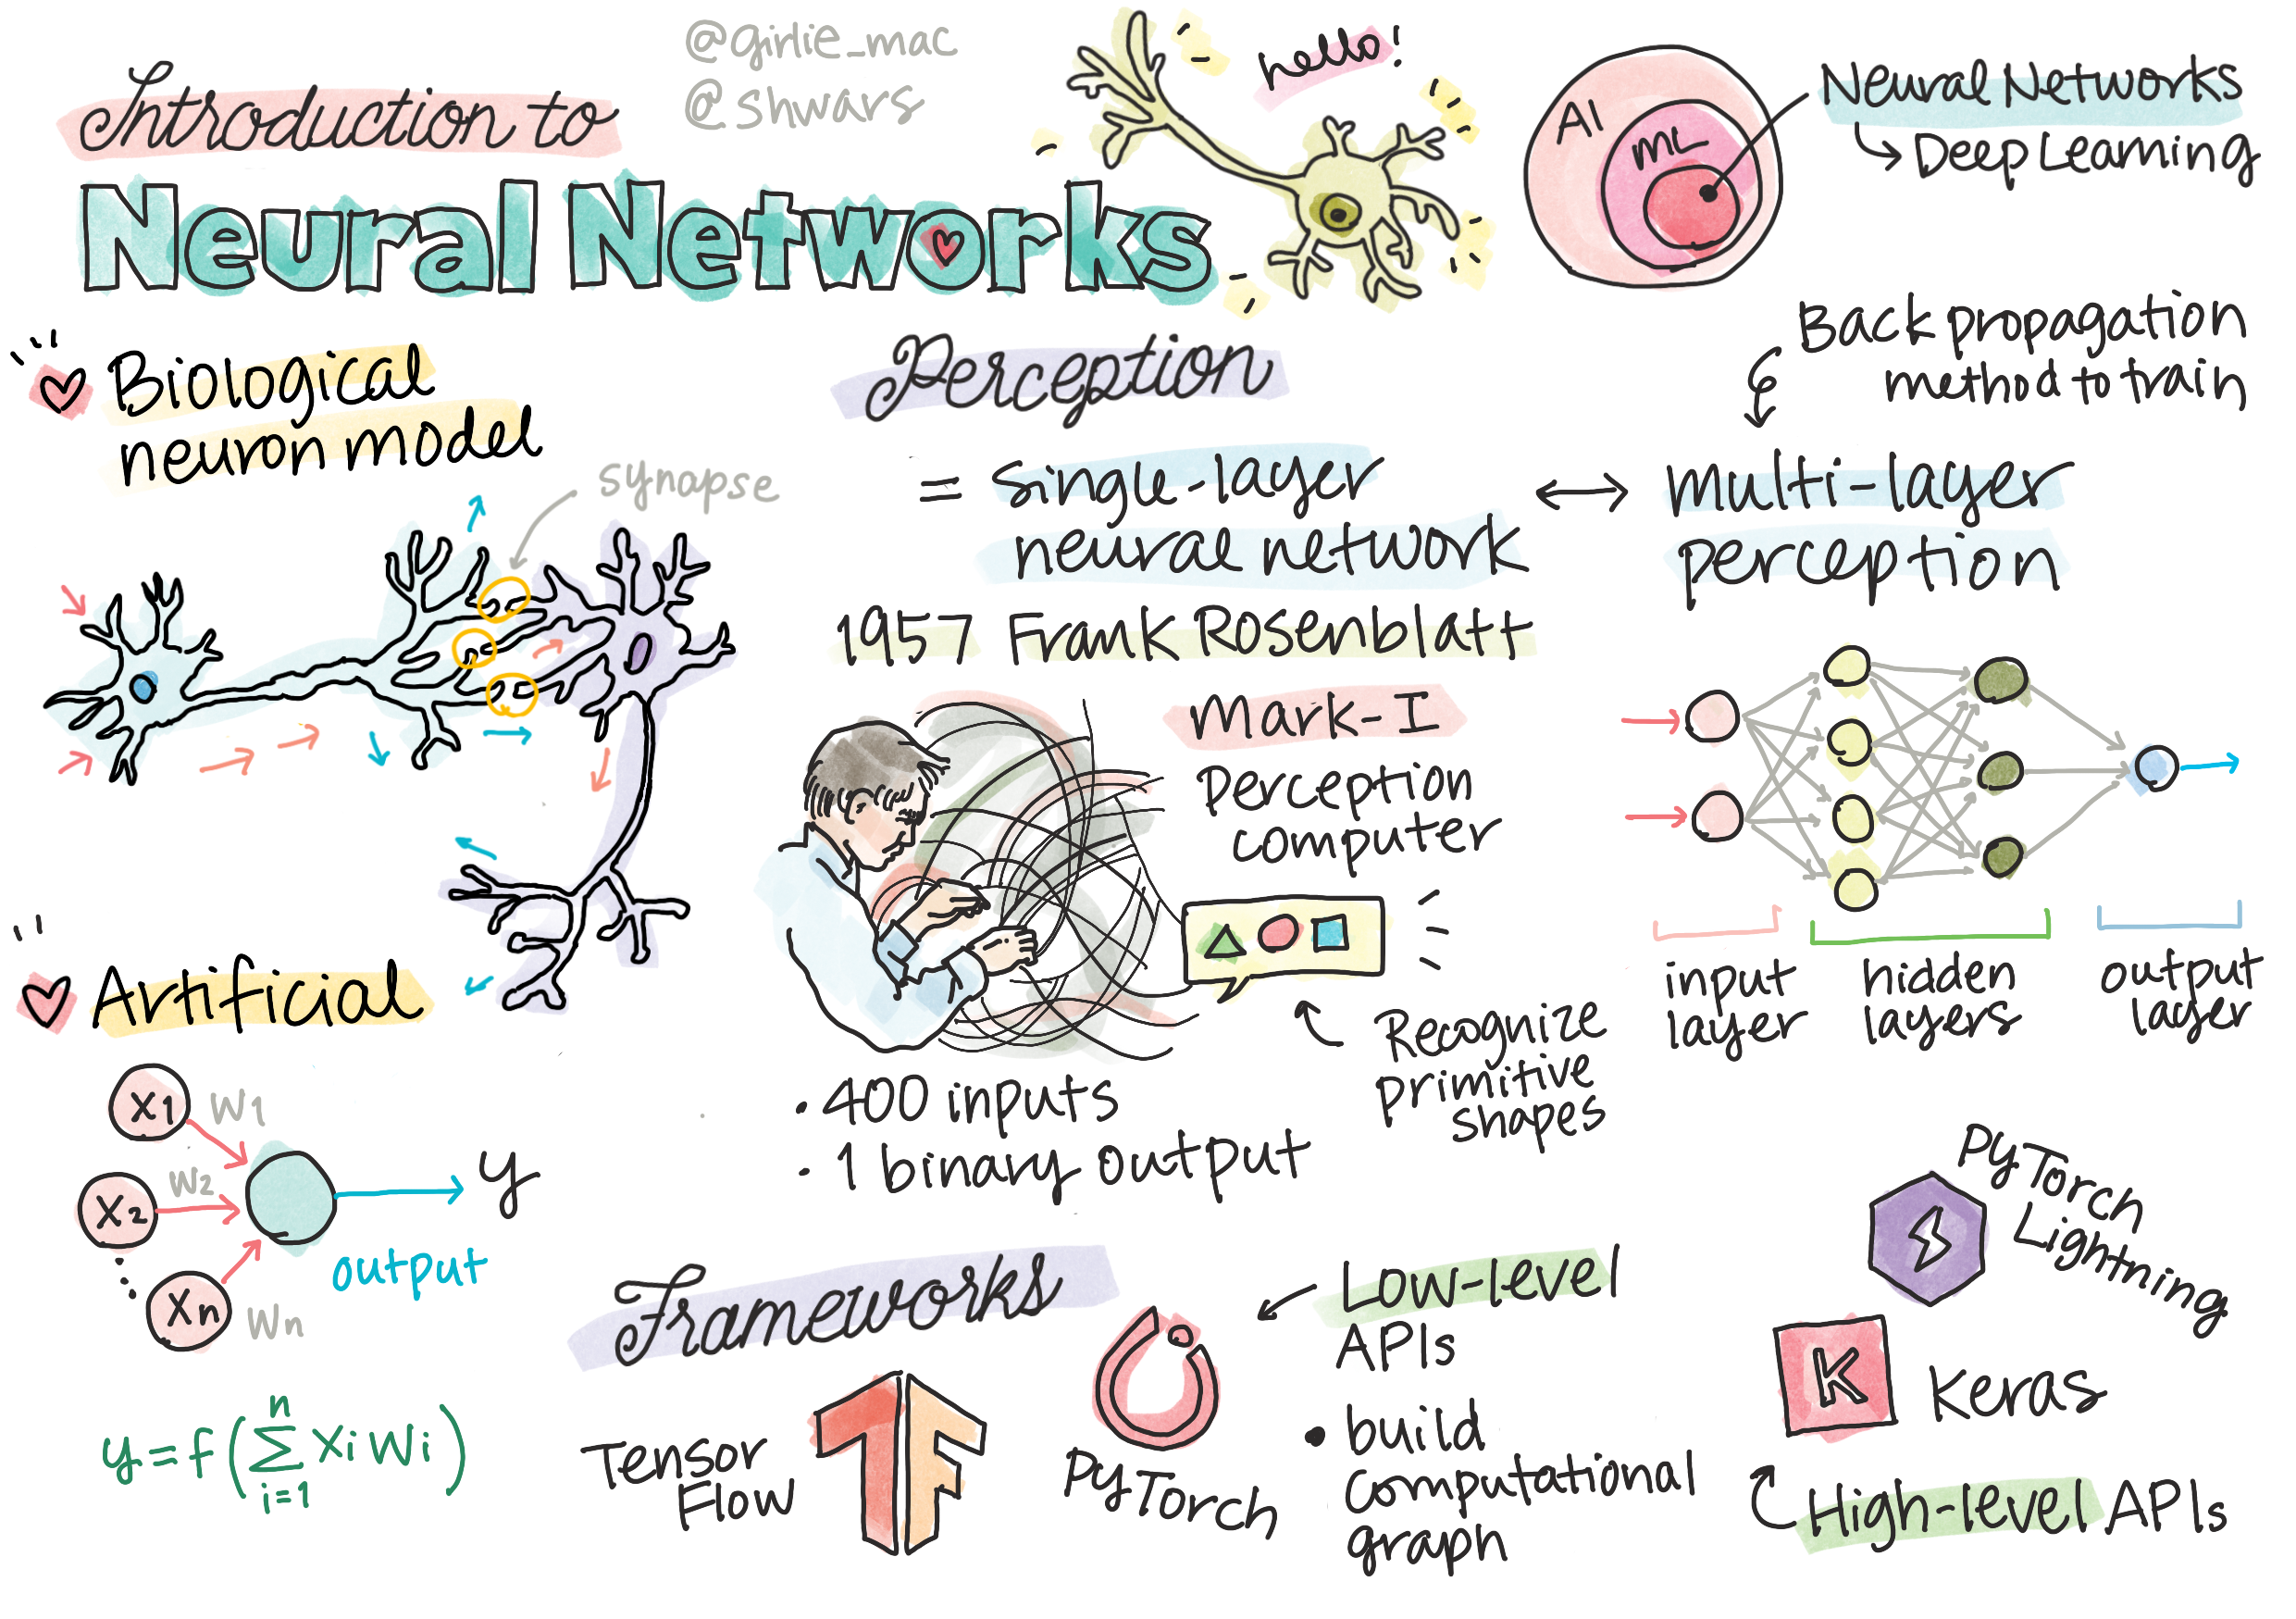 @girlie_mac
@shwars
Introduction to
Neural Networks
hello!
AI
ML
Neural Networks
Deep Learning
Biological
neuron model
synapse
Artificial
X1
W1
X2
W2
Xn
Wn
y
output
y = f(∑ Xi Wi)
n
i=1
Perception
= single-layer
neural network
1957 Frank Rosenblatt
Mark-I
perception
computer
Recognize
primitive
shapes
· 400 inputs
· 1 binary output
Back propagation
method to train
multi-layer
perception
input
layer
hidden
layers
output
layer
Frameworks
Tensor
Flow
TF
PyTorch
Low-level
APIs
• build
computational
graph
PyTorch
Lightning
K
Keras
High-level APIs